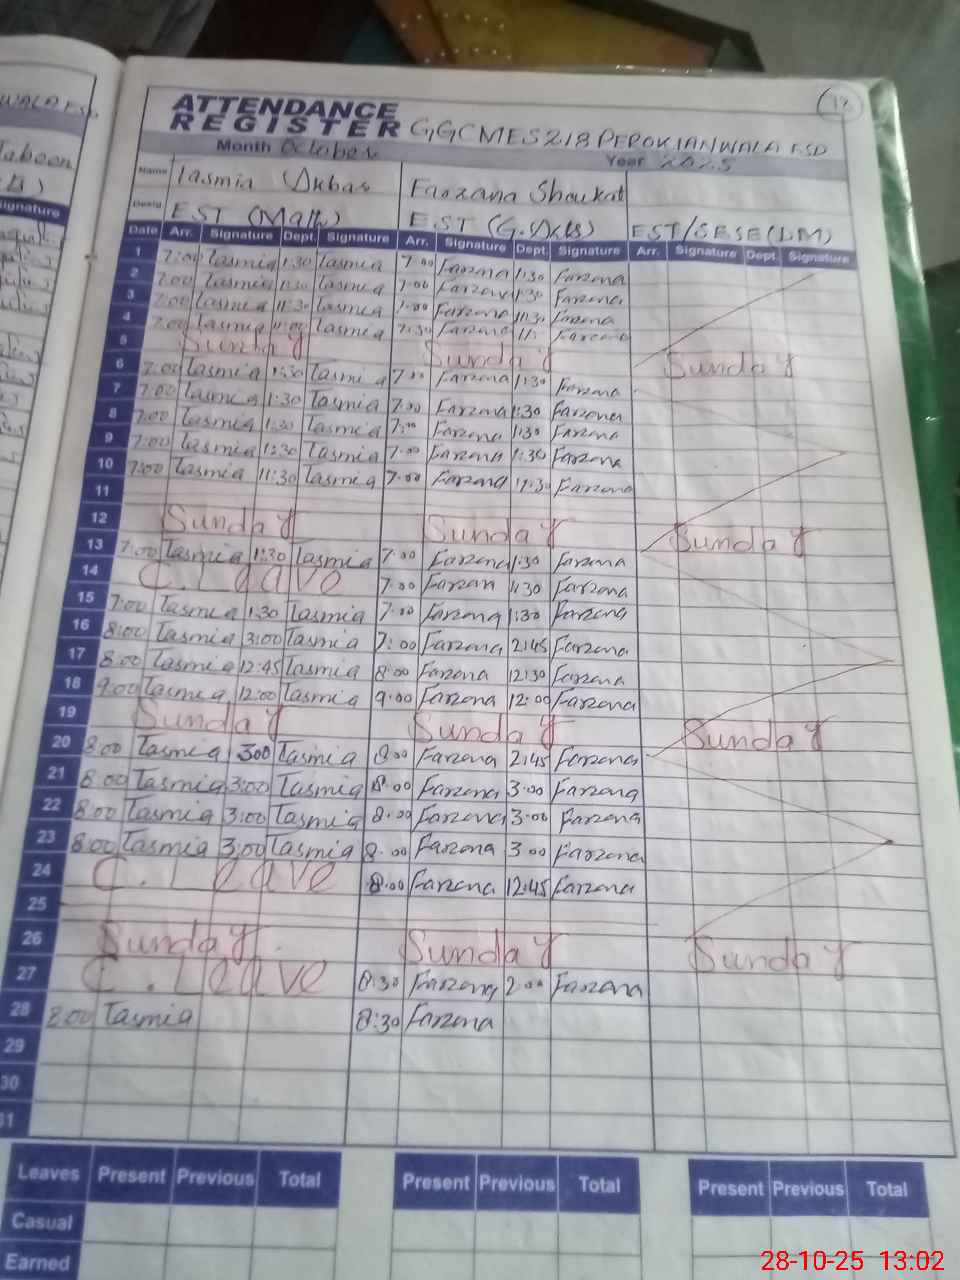 WALA FSD
ATTENDANCE
REGISTER GGCMES 218 PEROKIANWALA FSD
17
Month October Year 2025
Name Tasmia Akbar Farzana Shoukat
Desig. EST (Math) EST (G.Arts) EST/SESE (DM)
Date Arr. Signature Dept. Signature Arr. Signature Dept. Signature Arr. Signature Dept. Signature
1 7:00 Tasmia 1:30 Tasmia 7:00 Farzana 1:30 Farzana
2 7:00 Tasmia 1:30 Tasmia 7:00 Farzana 1:30 Farzana
3 7:00 Tasmia 11:30 Tasmia 7:00 Farzana 11:30 Farzana
4 7:00 Tasmia 11:00 Tasmia 7:30 Farzana 11: Farzana
5 Sunday Sunday Sunday
6 7:00 Tasmia 1:30 Tasmia 7:00 Farzana 1:30 Farzana
7 7:00 Tasmia 1:30 Tasmia 7:00 Farzana 1:30 Farzana
8 7:00 Tasmia 1:30 Tasmia 7:00 Farzana 1:30 Farzana
9 7:00 Tasmia 1:30 Tasmia 7:00 Farzana 1:30 Farzana
10 7:00 Tasmia 11:30 Tasmia 7:00 Farzana 11:30 Farzana
11
12 Sunday Sunday Sunday
13 7:00 Tasmia 1:30 Tasmia 7:00 Farzana 1:30 Farzana
14 C. Leave 7:00 Farzan 1:30 Farzana
15 7:00 Tasmia 1:30 Tasmia 7:00 Farzana 1:30 Farzana
16 8:00 Tasmia 3:00 Tasmia 7:00 Farzana 2:45 Farzana
17 8:00 Tasmia 12:45 Tasmia 8:00 Farzana 12:30 Farzana
18 9:00 Tasmia 12:00 Tasmia 9:00 Farzana 12:00 Farzana
19 Sunday Sunday Sunday
20 8:00 Tasmia 300 Tasmia 8:00 Farzana 2:45 Farzana
21 8:00 Tasmia 3:00 Tasmia 8:00 Farzana 3:00 Farzana
22 8:00 Tasmia 3:00 Tasmia 8:00 Farzana 3:00 Farzana
23 8:00 Tasmia 3:00 Tasmia 8:00 Farzana 3:00 Farzana
24 C. Leave 8:00 Farzana 12:45 Farzana
25
26 Sunday Sunday Sunday
27 C. Leave 8:30 Farzana 2:00 Farzana
28 8:00 Tasmia 8:30 Farzana
29
30
31
Leaves Present Previous Total Present Previous Total Present Previous Total
Casual
Earned
28-10-25 13:02